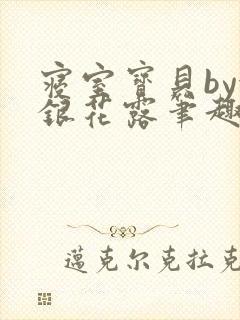 寝室寶貝by
銀花露筆趣
邁克尔克拉克